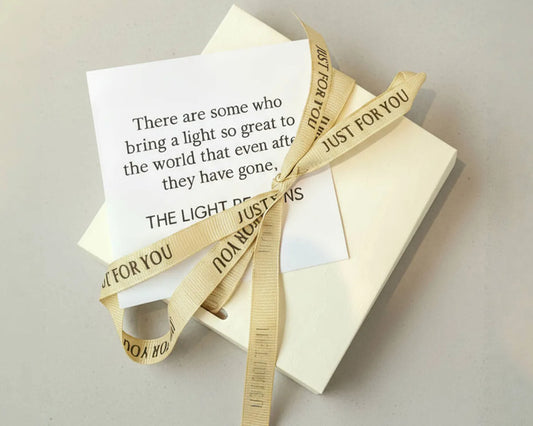 There are some who
bring a light so great to
the world that even afte
they have gone,
THE LIGHT
JUST FOR YOU
JUST FOR YOU
JUST
FOR YOU
FOR YOU
FOR YOU